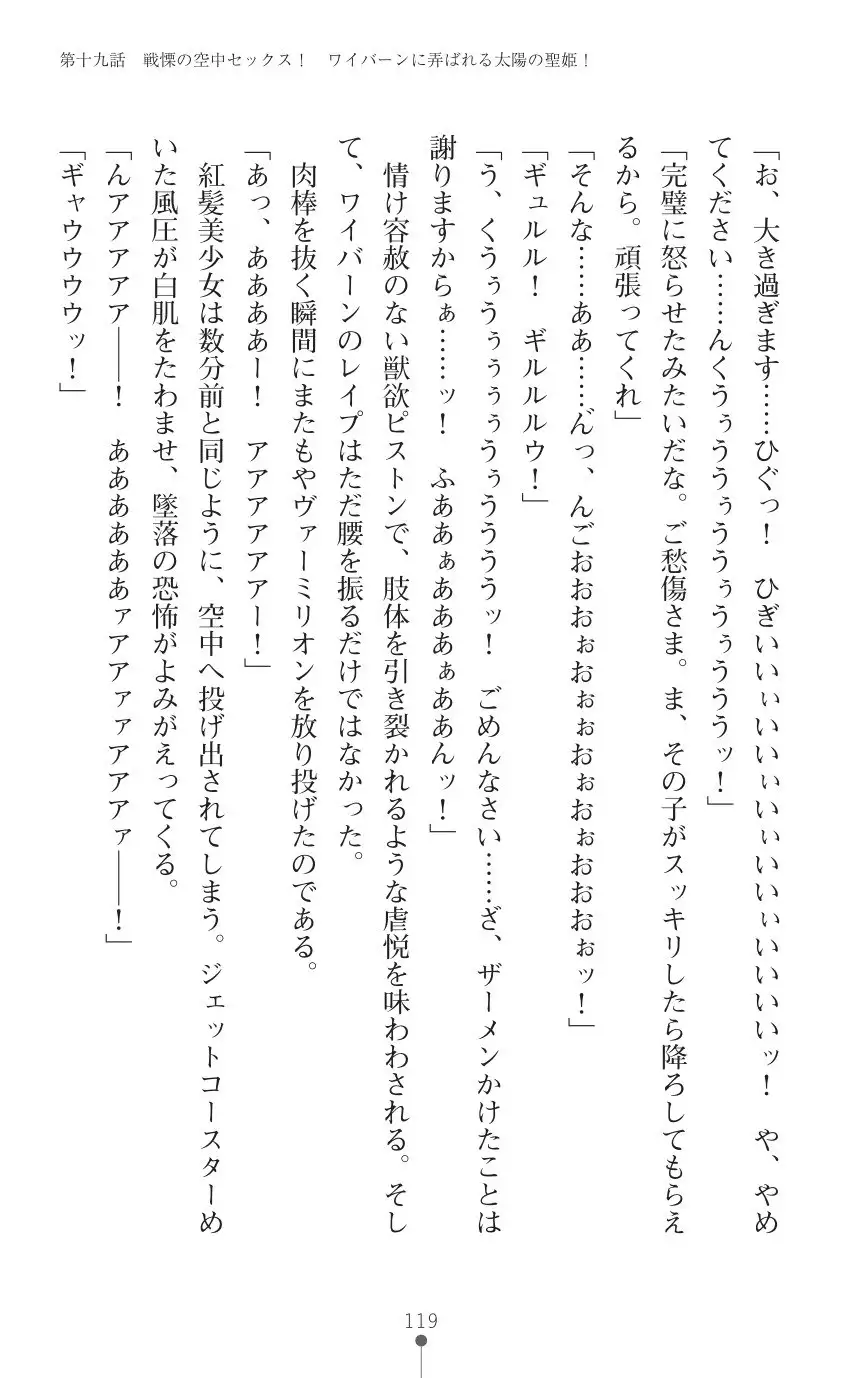 第十九話　戦慄の空中セックス！　ワイバーンに弄ばれる太陽の聖姫！
「お、大き過ぎます……ひぐっ！　ひぎいいぃいいぃいぃいいぃいいいいッ！　や、やめ
てください……んくうぅううぅううぅうぅうううッ！」
「完璧に怒らせたみたいだな。ご愁傷さま。ま、その子がスッキリしたら降ろしてもらえ
るから。頑張ってくれ」
「そんな……ああ……ん゛っ、んごおおおぉおぉぉおぉおぉおおおぉッ！」
「ギュルル！　ギルルルウ！」
「う、くうぅうぅぅぅうぅうううッ！　ごめんなさい……ざ、ザーメンかけたことは
謝りますからぁ……ッ！　ふああぁあああぁああんッ！」
情け容赦のない獣欲ピストンで、肢体を引き裂かれるような虐悦を味わわされる。そし
て、ワイバーンのレイプはただ腰を振るだけではなかった。
肉棒を抜く瞬間にまたもやヴァーミリオンを放り投げたのである。
「あっ、ああああー！　アアアアアアー！」
紅髪美少女は数分前と同じように、空中へ投げ出されてしまう。ジェットコースターめ
いた風圧が白肌をたわませ、墜落の恐怖がよみがえってくる。
「んアアアアア――！　ああああああァアアァァアアアァ――！」
「ギャウウウウッ！」
119